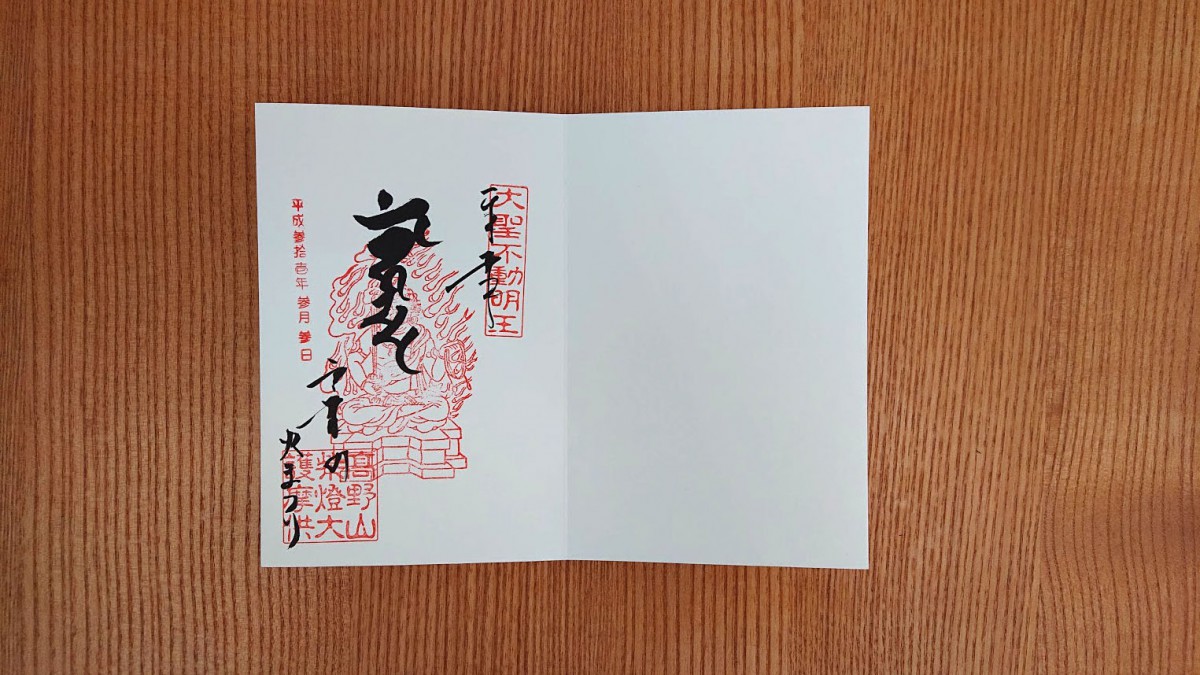 奉拝
大聖不動明王
高野の
火まつり
髙野山
柴燈大
護摩供
平成参拾壱年 参月 参日